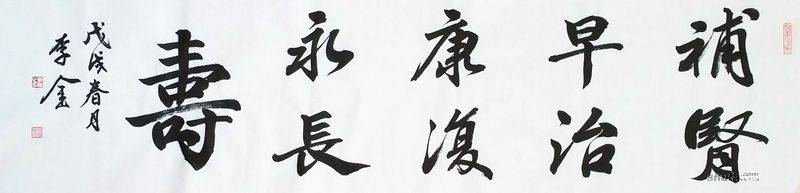 補腎
早治
康復
永長
壽
戊戌春月
李金